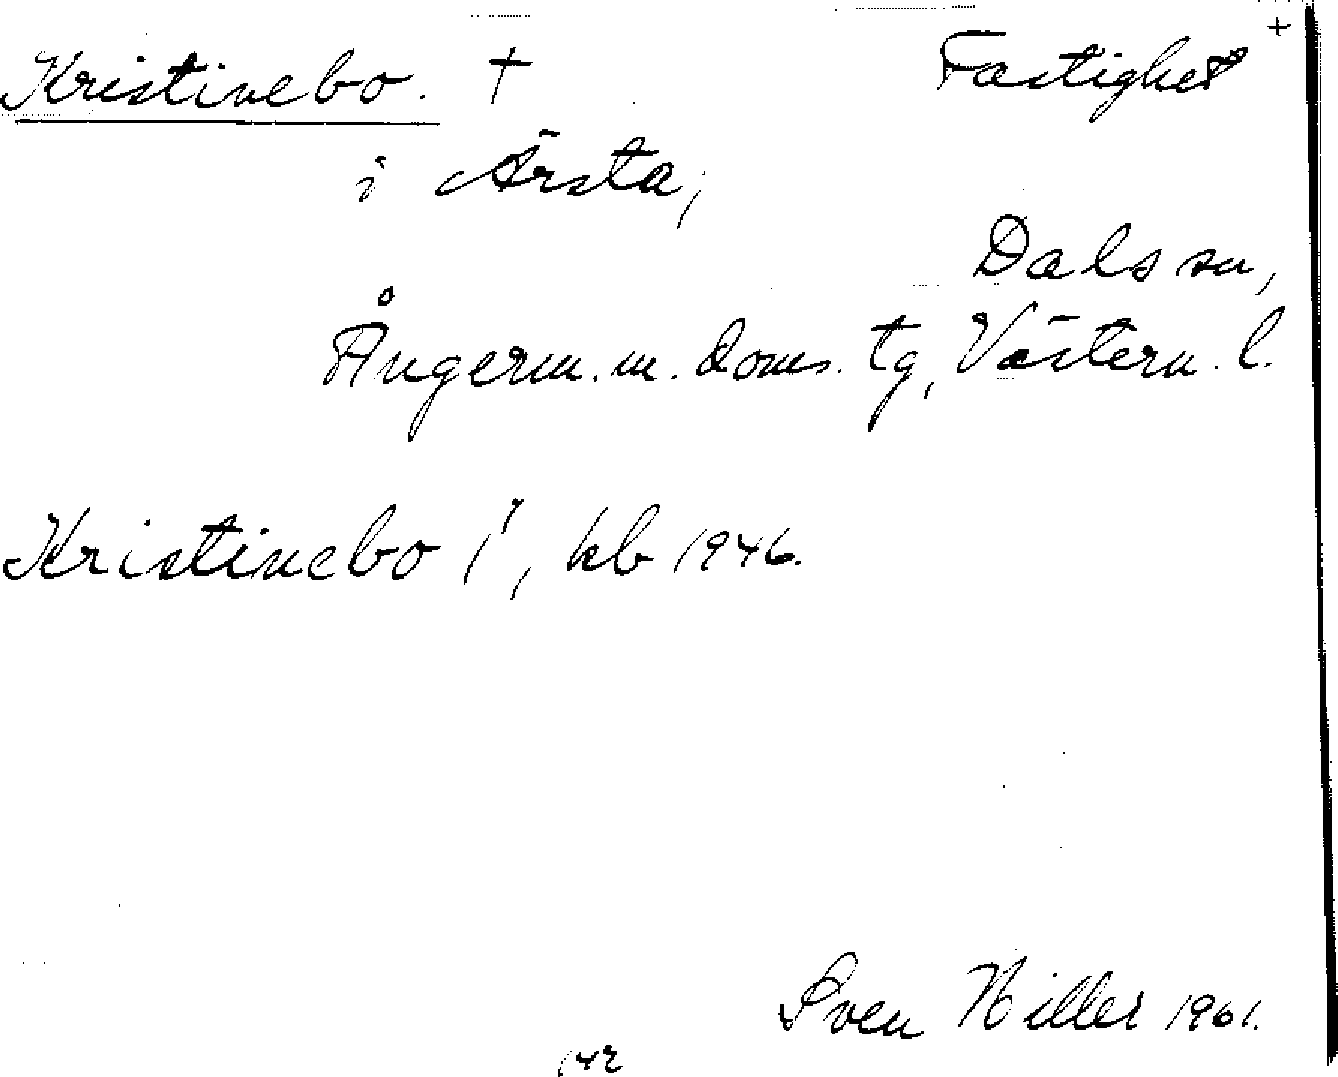 Kristinebo. † Fastighet +
i Ärsta,
Dals sn,
Ångerm. m. doms. tg, Västern. l.
Kristinebo 1², kb 1946.
Sven Hiller 1961.
142